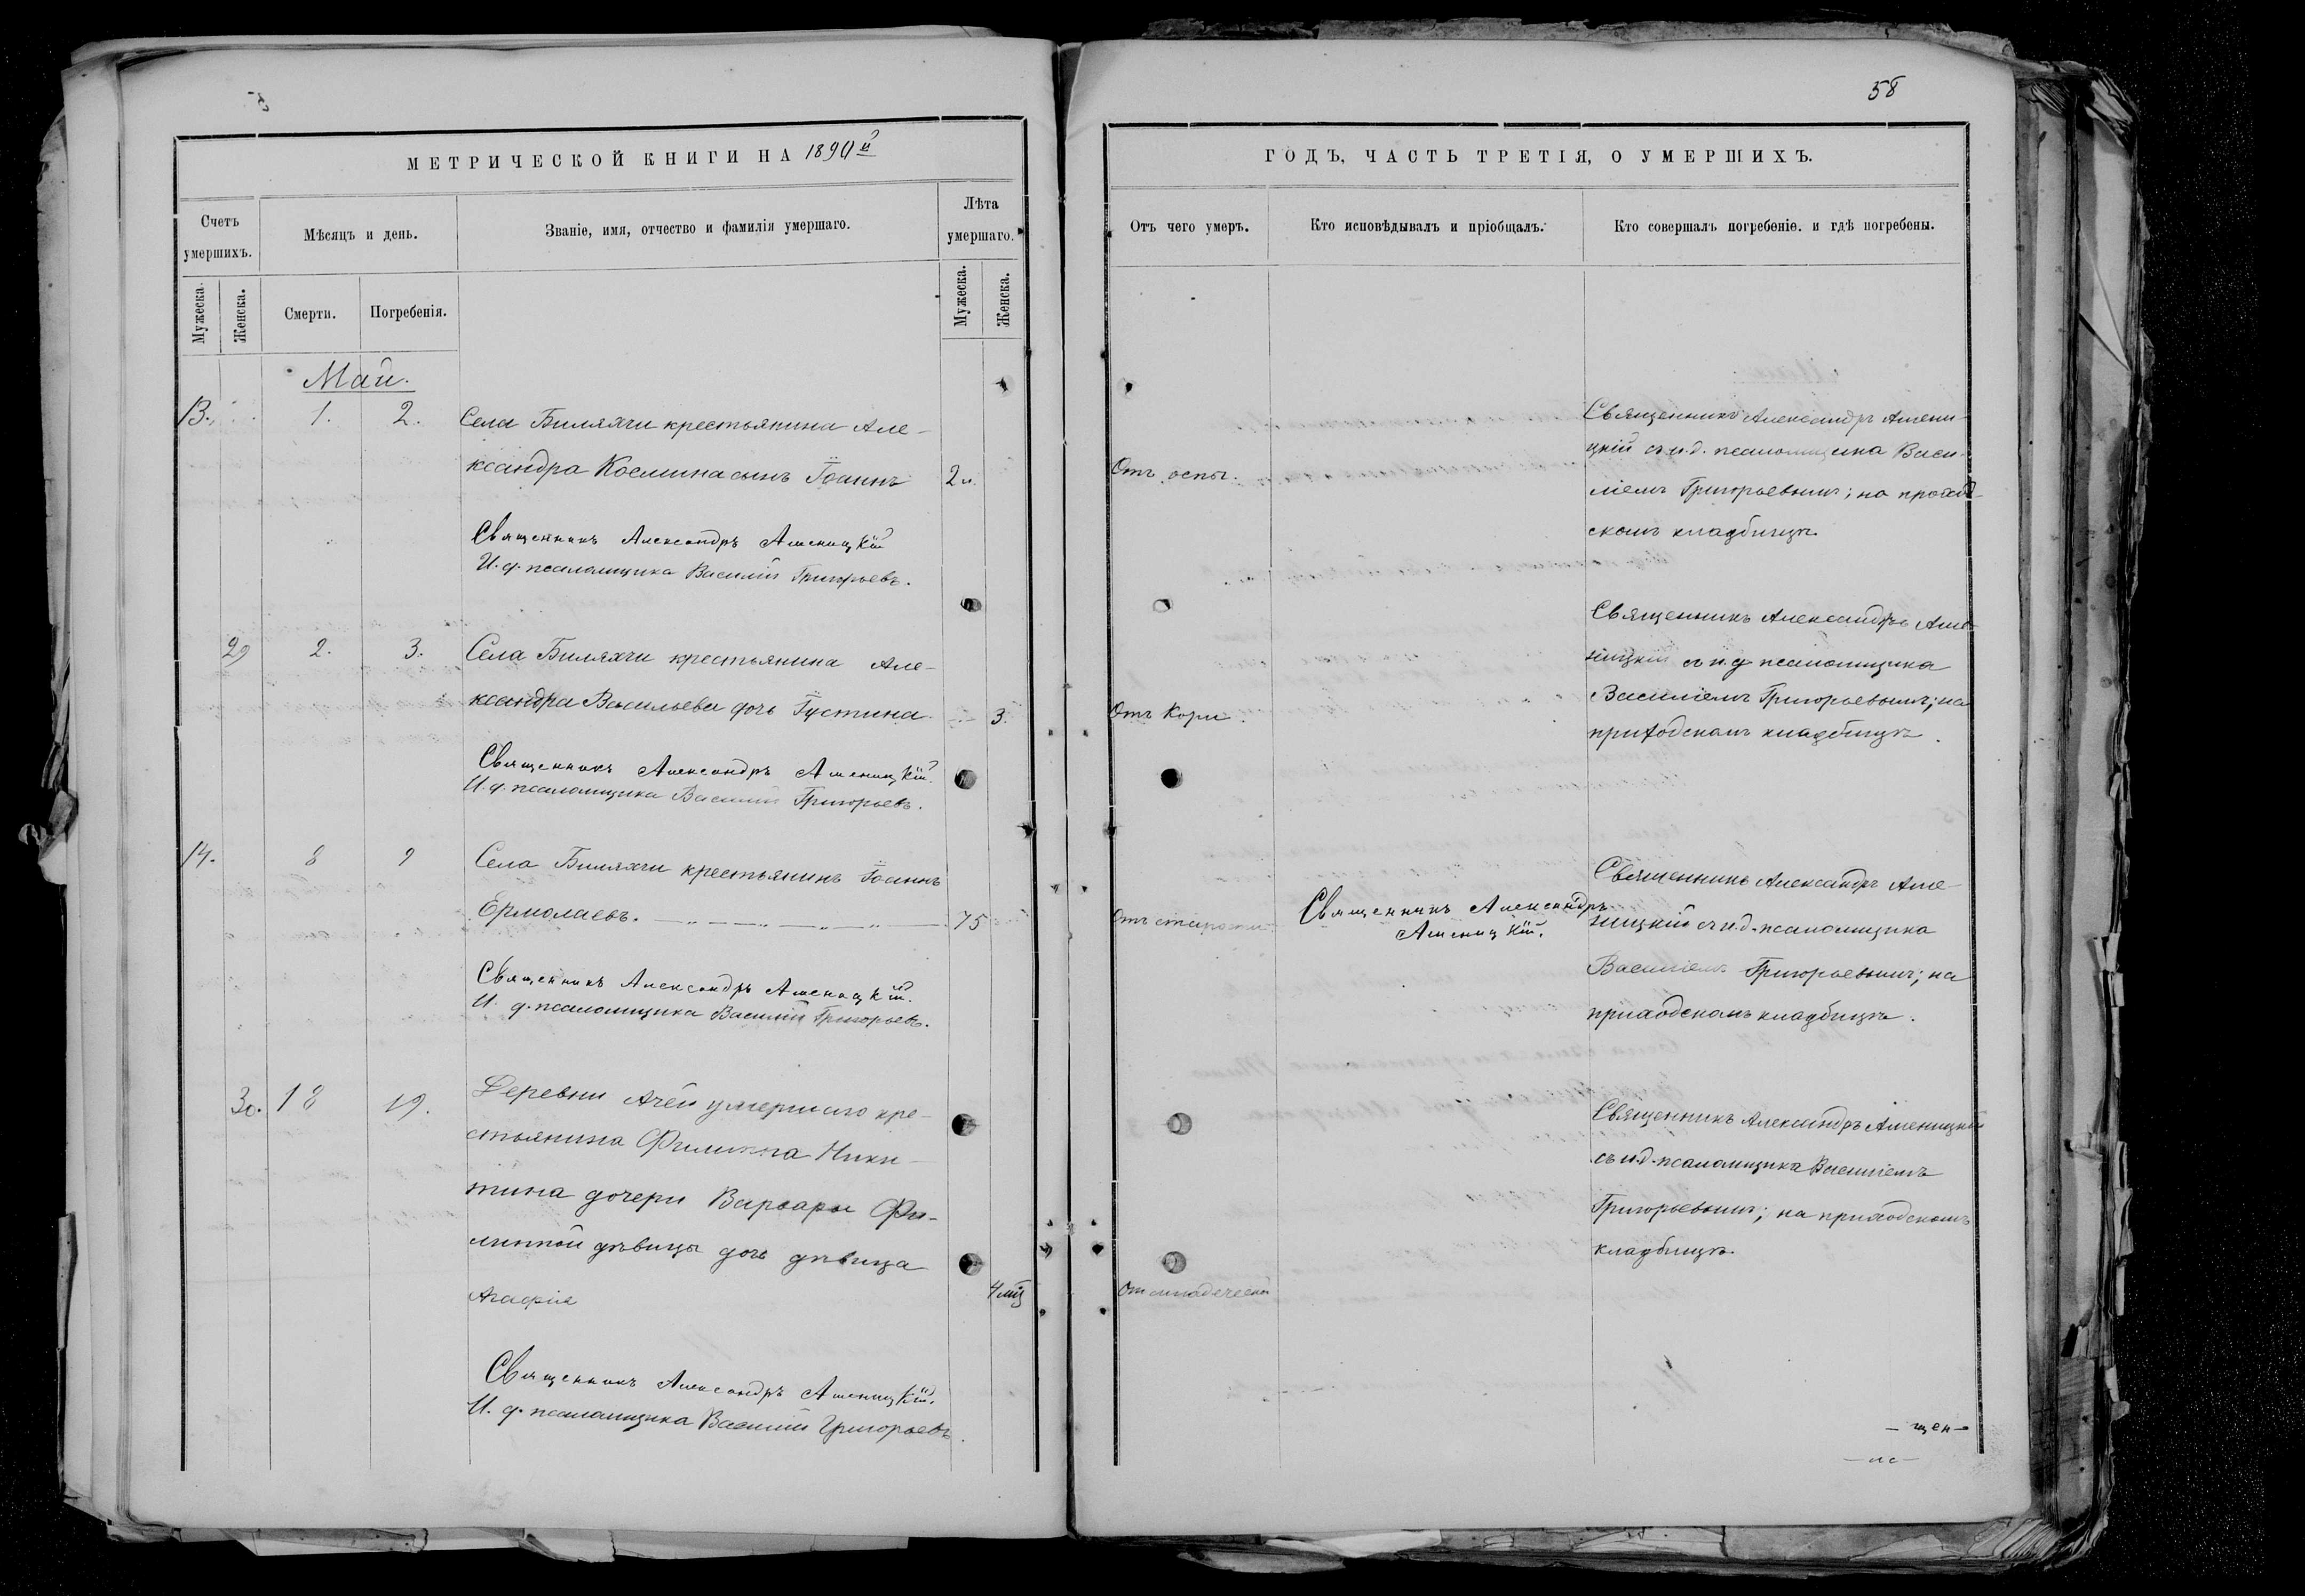 58
МЕТРИЧЕСКОЙ КНИГИ НА 1890й
ГОДЪ, ЧАСТЬ ТРЕТІЯ, О УМЕРШИХЪ.
Счетъ умершихъ.
Мѣсяцъ и день.
Званіе, имя, отчество и фамилія умершаго.
Лѣта умершаго.
Мужеска.
Женска.
Смерти.
Погребенія.
Мужеска.
Женска.
Отъ чего умеръ.
Кто исповѣдывалъ и пріобщалъ.
Кто совершалъ погребеніе. и гдѣ погребены.
Май.
13. 1. 2. Села Биляхчи крестьянина Але-
ксандра Космина сынъ Іоаннъ 2 л.
Священникъ Александръ Аменицкій
И. д. псаломщика Василій Григорьевъ.
Отъ оспы.
Священникъ Александръ Амени-
цкій съ и.д. псаломщика Васи-
ліемъ Григорьевымъ; на приход-
скомъ кладбищѣ.
29 2. 3. Села Биляхчи крестьянина Але-
ксандра Васильева дочь Іустина. 3.
Священникъ Александръ Аменицкій.
И. д. псаломщика Василій Григорьевъ.
Отъ кори.
Священникъ Александръ Аме-
ницкій съ и.д псаломщика
Василіемъ Григорьевымъ; на
приходскомъ кладбищѣ.
14. 8 9 Села Биляхчи крестьянинъ Іоаннъ
Ермолаевъ. 75
Священникъ Александръ Аменицкій.
И. д. псаломщика Василій Григорьевъ.
Отъ старости
Священникъ Александръ
Аменицкій.
Священникъ Александръ Аме-
ницкій съ и.д. псаломщика
Василіемъ Григорьевымъ; на
приходскомъ кладбищѣ.
30. 18 19. Деревни Ачей умершаго кре-
стьянина Филиппа Ники-
тина дочери Варвары Фи-
липповой дѣвицы дочь дѣвица
Агафія 4 мц
Священникъ Александръ Аменицкій.
И. д. псаломщика Василій Григорьевъ.
От младеческой
Священникъ Александръ Аменицкій
съ и.д. псаломщика Василіемъ
Григорьевымъ; на приходскомъ
кладбищѣ.
- щен -
- ис -